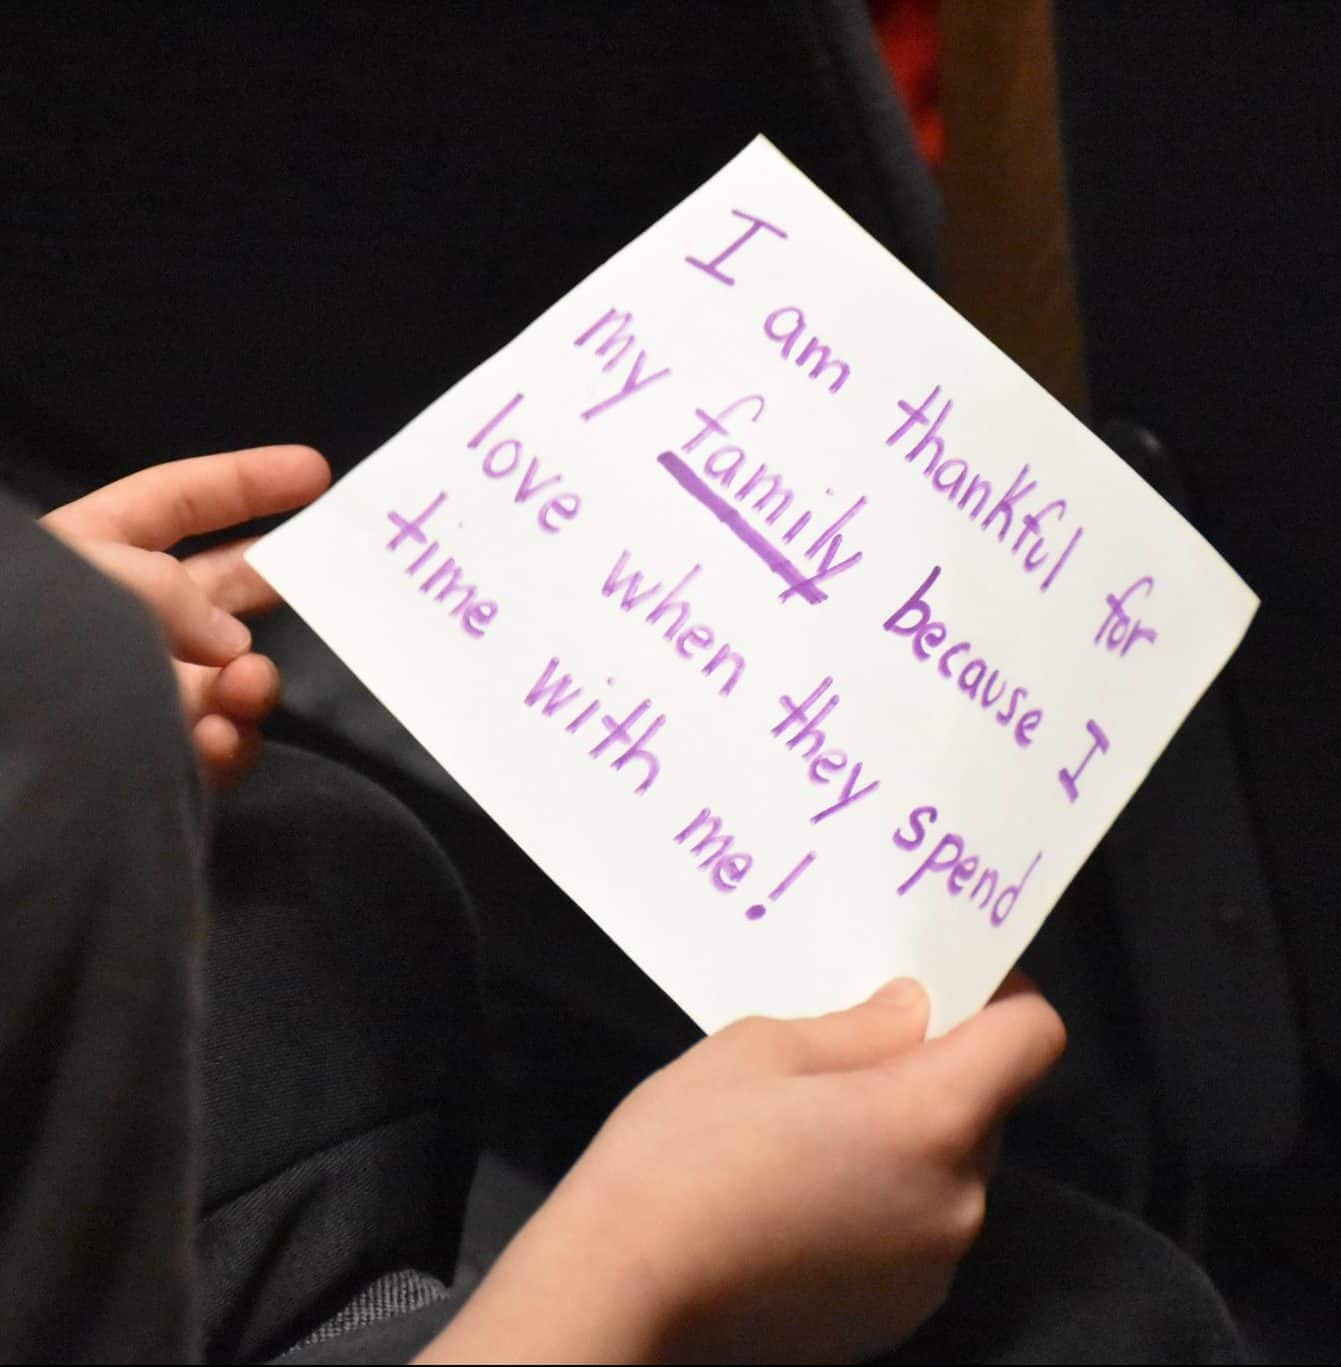 I am thankful for
my family because I
love when they spend
time with me!